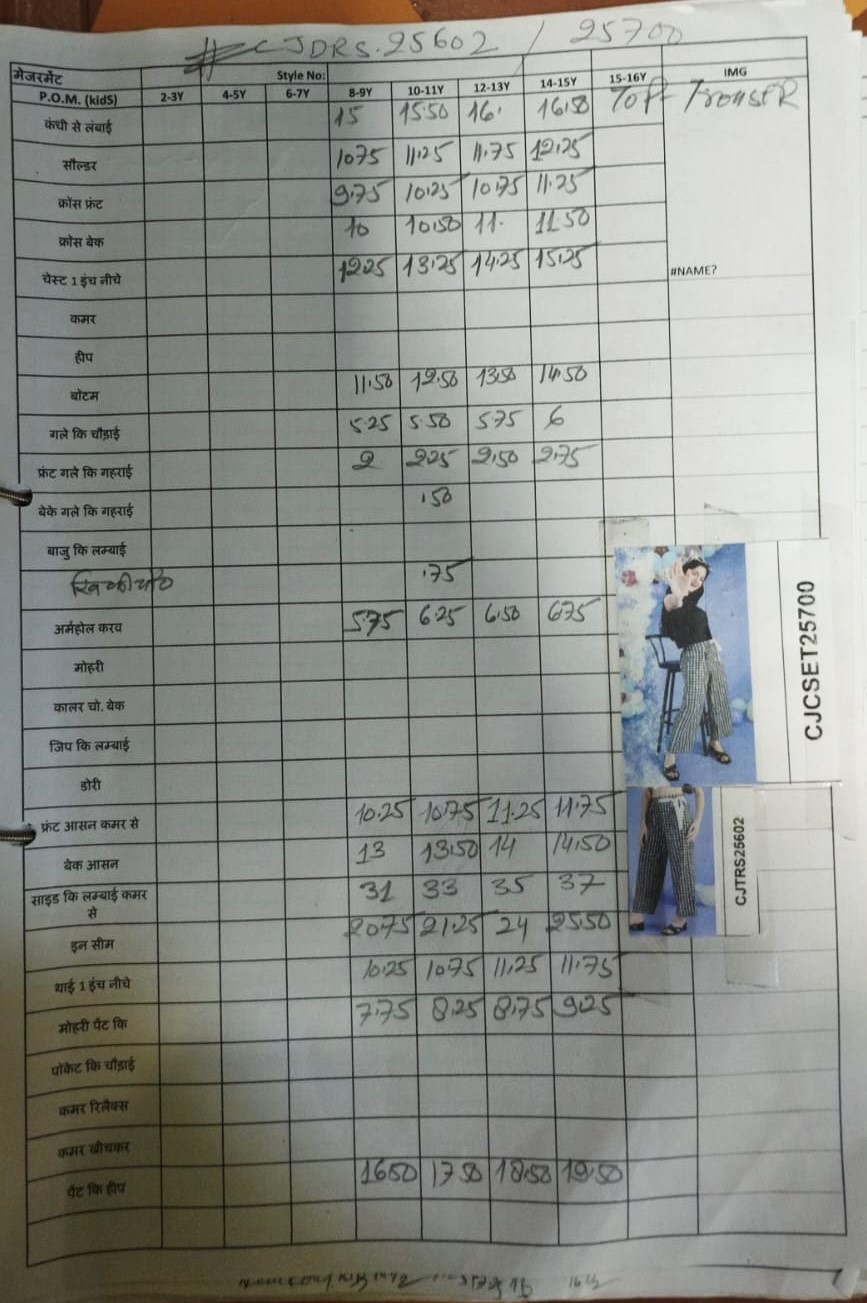 CJDRS.25602 / 25700
मेजरमेंट Style No: IMG
P.O.M. (kidS) 2-3Y 4-5Y 6-7Y 8-9Y 10-11Y 12-13Y 14-15Y 15-16Y TOP- TrousER
कंधी से लंबाई 15 15.50 16. 16.50
सौल्डर 10.75 11.25 11.75 12.25
क्रॉस फ्रंट 9.75 10.25 10.75 11.25
क्रोस बेक 10 10.50 11. 11.50
चेस्ट 1 इंच नीचे 12.25 13.25 14.25 15.25 #NAME?
कमर
हीप
बॉटम 11.50 12.50 13.50 14.50
गले कि चौड़ाई 5.25 5.50 5.75 6
फ्रंट गले कि गहराई 2 2.25 2.50 2.75
बेके गले कि गहराई .50
बाजु कि लम्बाई
.75
अर्महोल करव 5.75 6.25 6.50 6.75
मोहरी
कालर चो. बेक
जिप कि लम्बाई
डोरी
CJCSET25700
फ्रंट आसन कमर से 10.25 10.75 11.25 11.75
बेक आसन 13 13.50 14 14.50
साइड कि लम्बाई कमर से 31 33 35 37
CJTRS25602
इन सीम 20.75 21.25 24 25.50
थाई 1 इंच नीचे 10.25 10.75 11.25 11.75
मोहरी पैंट कि 7.75 8.25 8.75 9.25
पॉकेट कि चौड़ाई
कमर रिलैक्स
कमर खीचकर
पैंट कि हीप 16.50 17.50 18.50 19.50